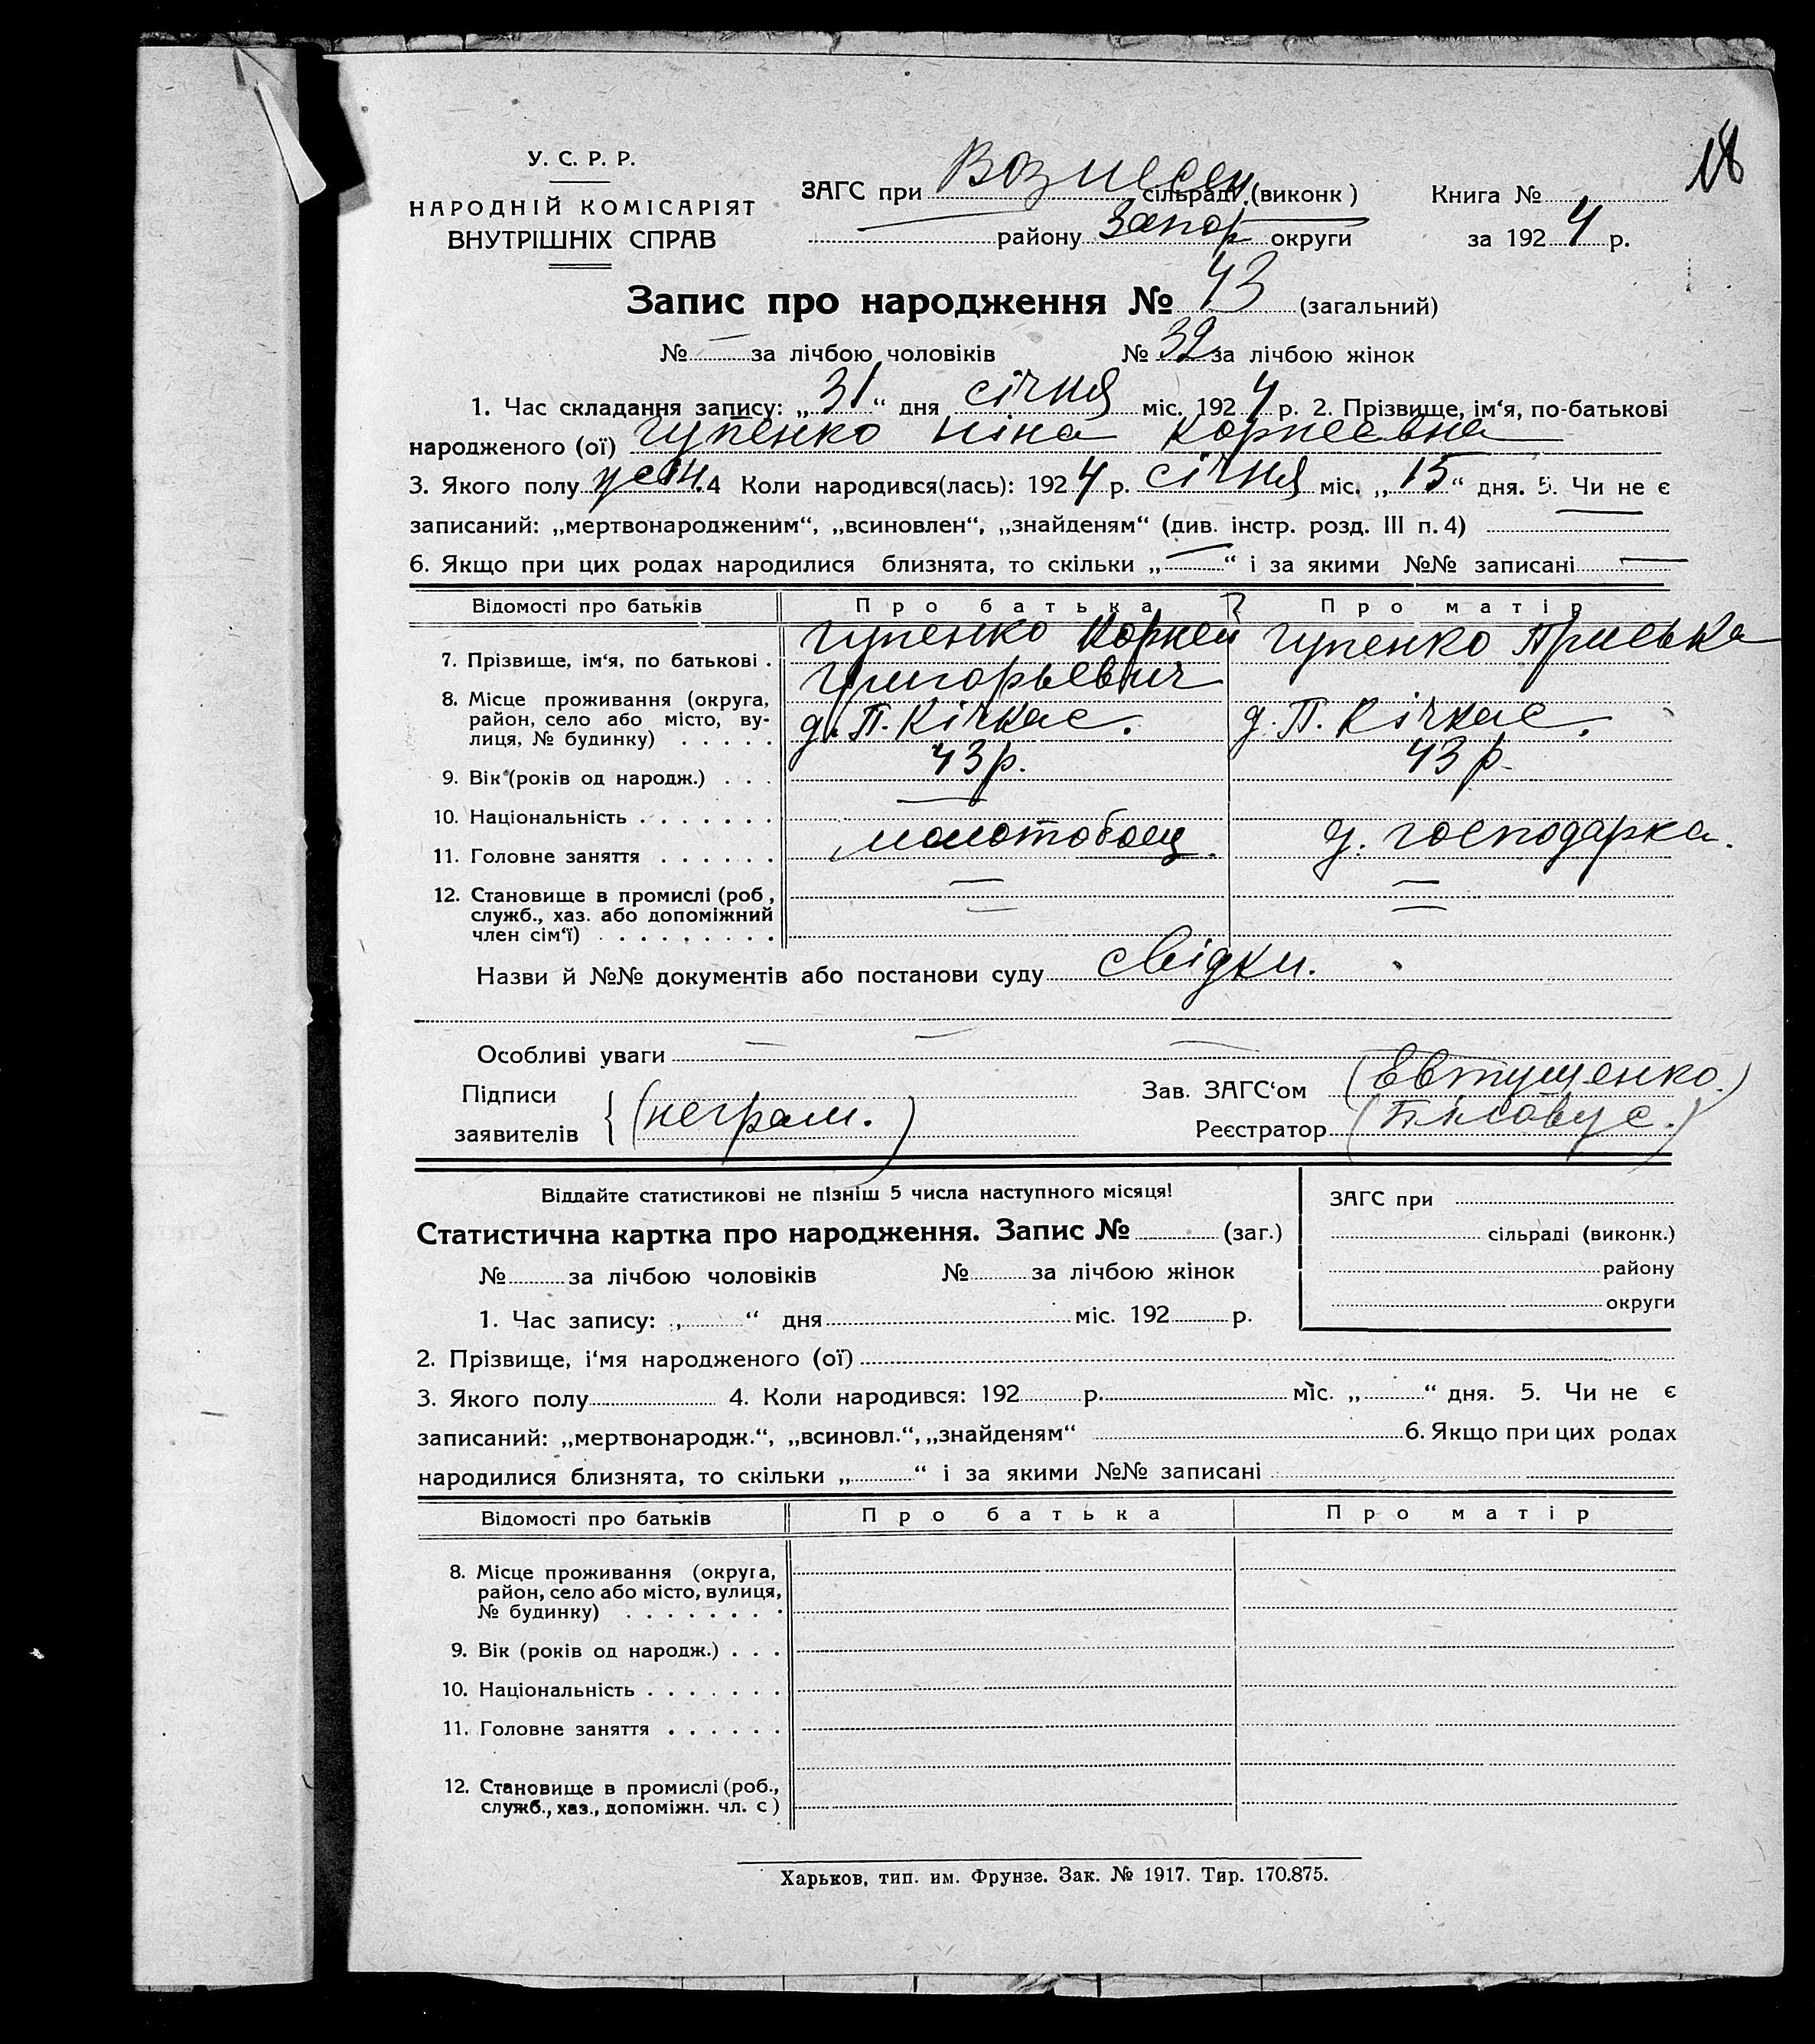 18
У. С. Р. Р.
НАРОДНІЙ КОМІСАРІЯТ
ВНУТРІШНІХ СПРАВ
ЗАГС при Вознесен. сільраді (виконк)
району Запор округи
Книга №
за 1924 р.
Запис про народження № 43 (загальний)
№ — за лічбою чоловіків № 32 за лічбою жінок
1. Час складання запису: „31“ дня січня міс. 1924 р. 2. Прізвище, ім‘я, по-батькові
народженого (ої) Гупенко Ніна Корнеевна
3. Якого полу жін. 4 Коли народився(лась): 1924 р. січня міс. „15“ дня. 5. Чи не є
записаний: „мертвонародженим“, „всиновлен“, „знайденям“ (див. інстр. розд. III п. 4) —
6. Якщо при цих родах народилися близнята, то скільки „—“ і за якими №№ записані —
Відомості про батьків Про батька Про матір
7. Прізвище, ім‘я, по батькові . Гупенко Корней Гупенко Приська
Григорьевич
8. Місце проживання (округа,
район, село або місто, ву-
лиця, № будинку) . . . . . д. П. Кічкас. д. П. Кічкас.
9. Вік (років од народж.) . . . 43 р. 43 р.
10. Національність . . . . . . . —
11. Головне заняття . . . . . . молотобоец. д. господарка.
12. Становище в промислі (роб.,
служб., хаз. або допоміжний
член сім‘ї) . . . . . . . . . — —
Назви й №№ документів або постанови суду свідки.
Особливі уваги — — —
Підписи
заявителів { (неграм.)
Зав. ЗАГС‘ом (Евтушенко.)
Реєстратор (Біловус.)
Віддайте статистикові не пізніш 5 числа наступного місяця!
Статистична картка про народження. Запис № (заг.)
№ за лічбою чоловіків № за лічбою жінок
1. Час запису: „ “ дня міс. 192 р.
ЗАГС при
сільраді (виконк.)
району
округи
2. Прізвище, і‘мя народженого (ої)
3. Якого полу 4. Коли народився: 192 р. міс. „ “ дня. 5. Чи не є
записаний: „мертвонародж.“, „всиновл.“, „знайденям“ 6. Якщо при цих родах
народилися близнята, то скільки „ “ і за якими №№ записані
Відомості про батьків Про батька Про матір
8. Місце проживання (округа,
район, село або місто, вулиця,
№ будинку) . . . . . . .
9. Вік (років од народж.) . . .
10. Національність . . . . . . .
11. Головне заняття . . . . . .
12. Становище в промислі (роб.,
служб., хаз., допоміжн. чл. с)
Харьков, тип. им. Фрунзе. Зак. № 1917. Тир. 170.875.